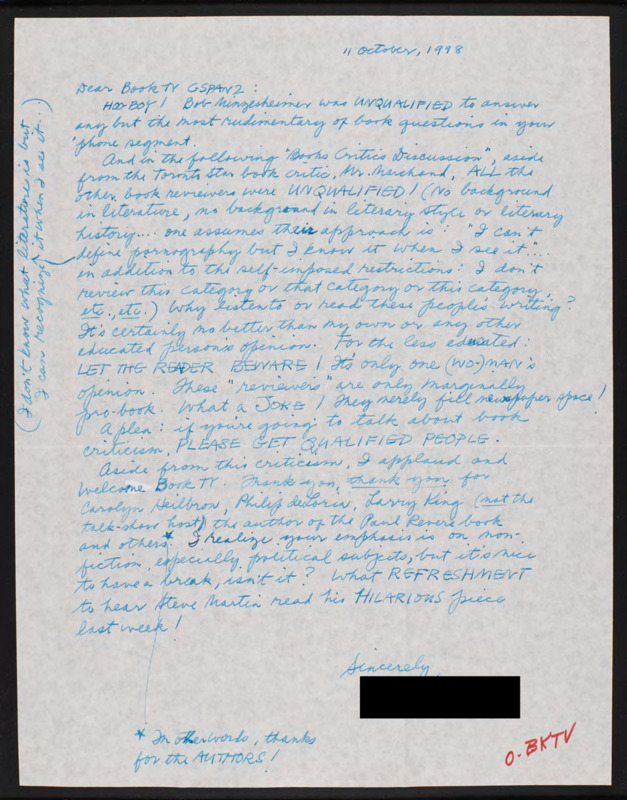 11 October, 1998
Dear Book TV CSPAN2:
HOO-BOY! Bob Minzesheimer was UNQUALIFIED to answer
any but the most rudimentary of book questions in your
phone segment.
And in the following "Books Critics Discussion", aside
from the Toronto Star book critic, Mr. Marchand, ALL the
other book reviewers were UNQUALIFIED! (No background
in literature, no background in literary style or literary
history.... one assumes their approach is: "I can't
define pornography but I know it when I see it"...
in addition to the self-imposed restrictions: I don't
review this category or that category or this category,
etc., etc.) Why listen to or read these people's writing?
It's certainly no better than my own or any other
educated person's opinion. For the less educated:
LET THE READER BEWARE! It's only one (WO-)MAN's
opinion. These "reviewers" are only marginally
pro-book. What a JOKE! They merely fill newspaper space!
A plea: if you're going to talk about book
criticism, PLEASE GET QUALIFIED PEOPLE.
Aside from this criticism, I applaud and
welcome Book TV. Thank you, thank you for
Carolyn Heilbron, Philip deLoria, Larry King (not the
talk-show host) the author of the Paul Revere book
and others.* I realize your emphasis is on non-
fiction, especially political subjects, but it's nice
to have a break, isn't it? What REFRESHMENT
to hear Steve Martin read his HILARIOUS piece
last week!
Sincerely,
* In other words, thanks
for the AUTHORS!
(I don't know what literature is but
I can recognize it when I see it...)
O-BKTV